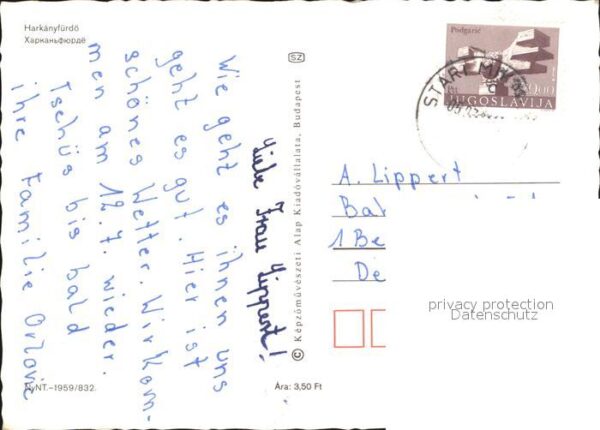 Harkányfürdő
Харканьфюрдё
Liebe Frau Lippert!
Wie geht es ihnen uns
geht es gut. Hier ist
schönes Wetter. Wir kom-
men am 12.7. wieder.
Tschüs bis bald
ihre Familie
SZ
© Képzőművészeti Alap Kiadóvállalata, Budapest
NyNT.–1959/832.
Ára: 3,50 Ft
Podgarić
JUGOSLAVIJA
STARI
A. Lippert
Bal
1 Be
De
privacy protection
Datenschutz